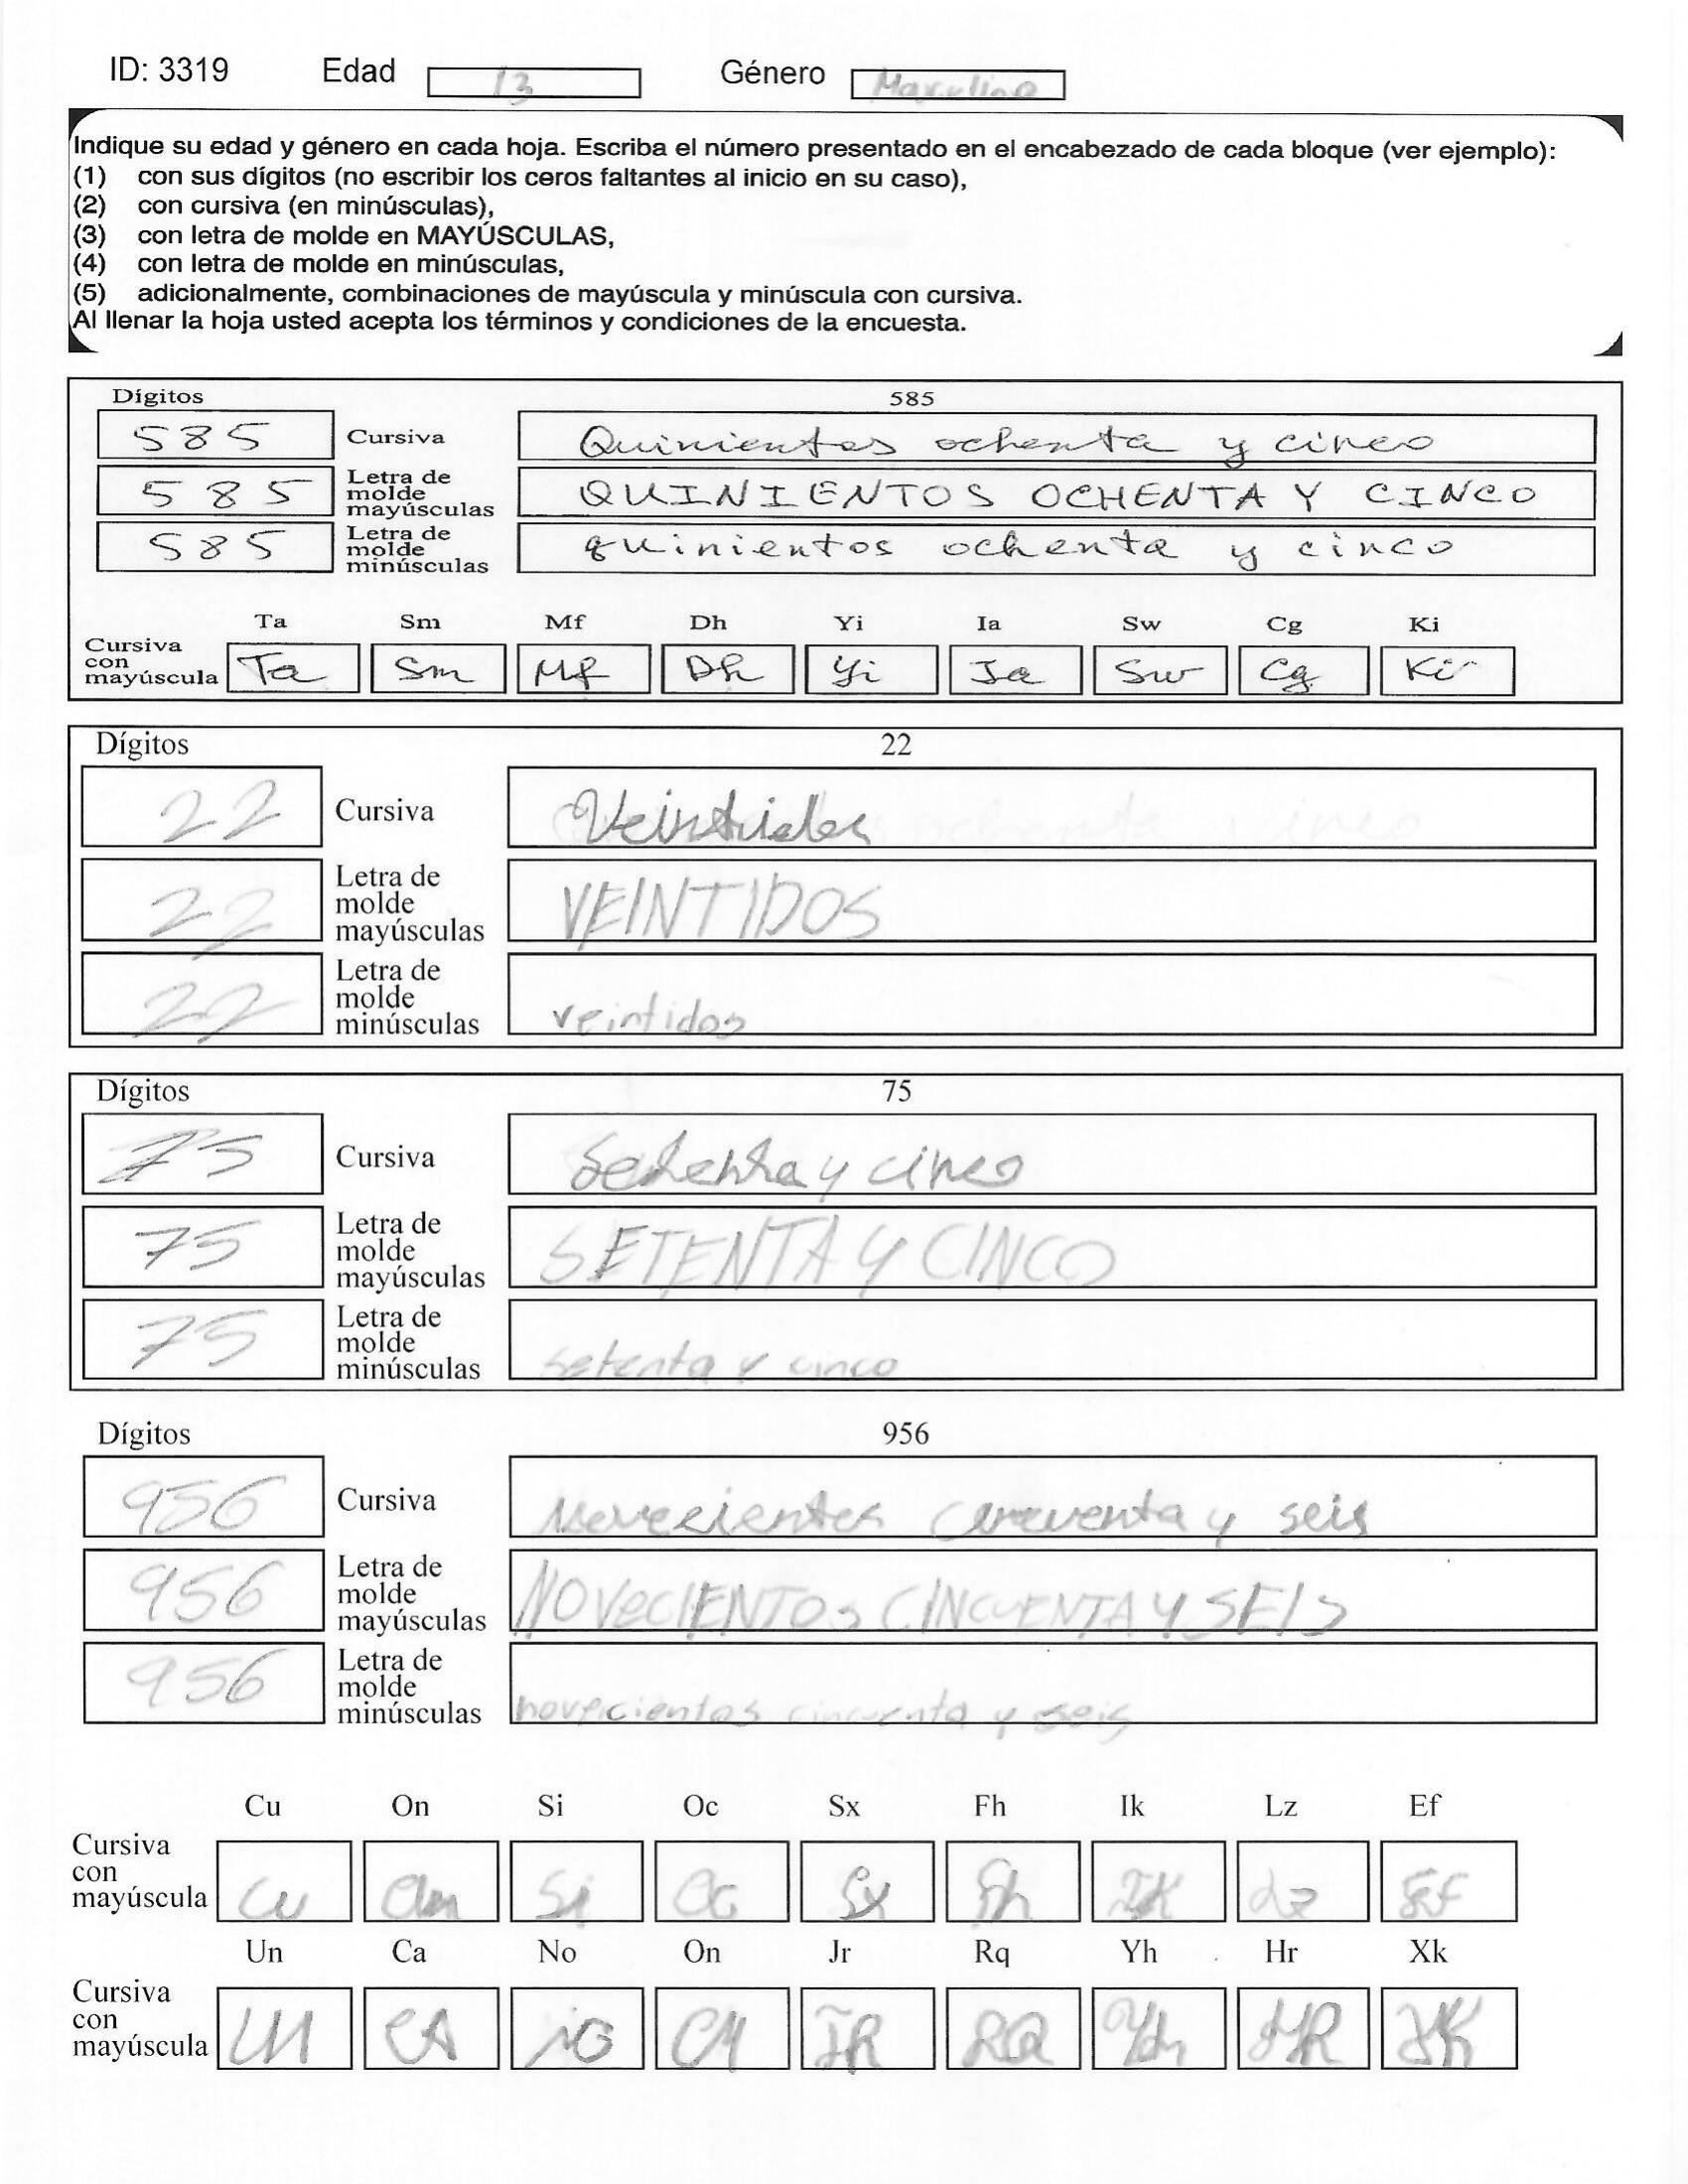 ID: 3319 Edad 13 Género Masculino
Indique su edad y género en cada hoja. Escriba el número presentado en el encabezado de cada bloque (ver ejemplo):
(1) con sus dígitos (no escribir los ceros faltantes al inicio en su caso),
(2) con cursiva (en minúsculas),
(3) con letra de molde en MAYÚSCULAS,
(4) con letra de molde en minúsculas,
(5) adicionalmente, combinaciones de mayúscula y minúscula con cursiva.
Al llenar la hoja usted acepta los términos y condiciones de la encuesta.
Dígitos 585
585 Cursiva Quinientos ochenta y cinco
585 Letra de molde mayúsculas QUINIENTOS OCHENTA Y CINCO
585 Letra de molde minúsculas quinientos ochenta y cinco
Ta Sm Mf Dh Yi Ia Sw Cg Ki
Cursiva con mayúscula Ta Sm Mf Dh Yi Ia Sw Cg Ki
Dígitos 22
22 Cursiva Veintidos
22 Letra de molde mayúsculas VEINTIDOS
22 Letra de molde minúsculas veintidos
Dígitos 75
75 Cursiva Setenta y cinco
75 Letra de molde mayúsculas SETENTA Y CINCO
75 Letra de molde minúsculas setenta y cinco
Dígitos 956
956 Cursiva Novecientos cincuenta y seis
956 Letra de molde mayúsculas NOVeCIENTOS CINCUENTA Y SEIS
956 Letra de molde minúsculas novecientos cincuenta y seis
Cu On Si Oc Sx Fh Ik Lz Ef
Cursiva con mayúscula Cu On Si Oc Sx Fh Ik Lz Ef
Un Ca No On Jr Rq Yh Hr Xk
Cursiva con mayúscula UN CA NO ON JR RQ Yh HR XK